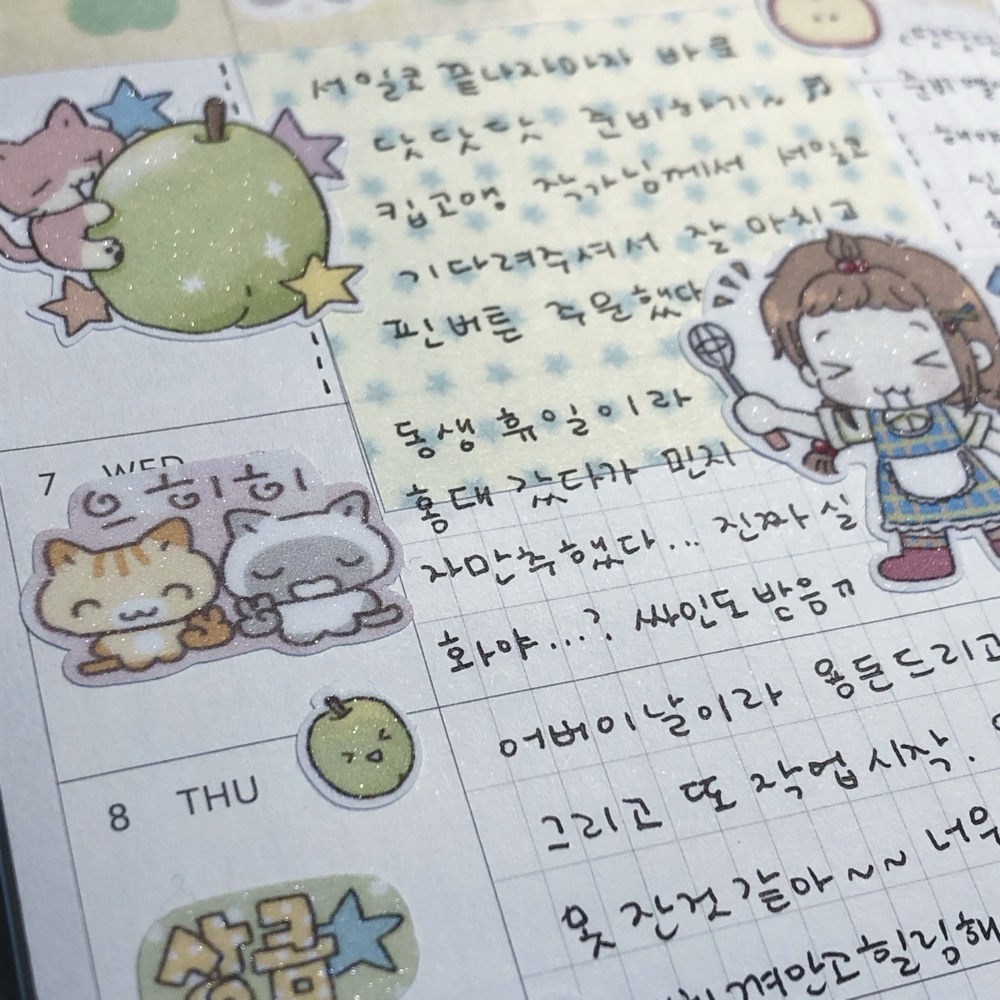 서일코 끝나자마자 바로
닷닷닷 준비하기~
킵고앵 작가님께서 서일코
기다려주셔서 잘 마치고
핀버튼 주문했다
동생 휴일이라
7 WED
으 히히히
홍대 갔다가 먼지
자만추했다... 진짜 실
화야...?. 싸인도 받음ㅠ
어버이날이라 용돈드리고
8 THU
그리고 또 작업시작.
못 잔것 같아~~ 너무
상큼
껴안고힐링해
준비